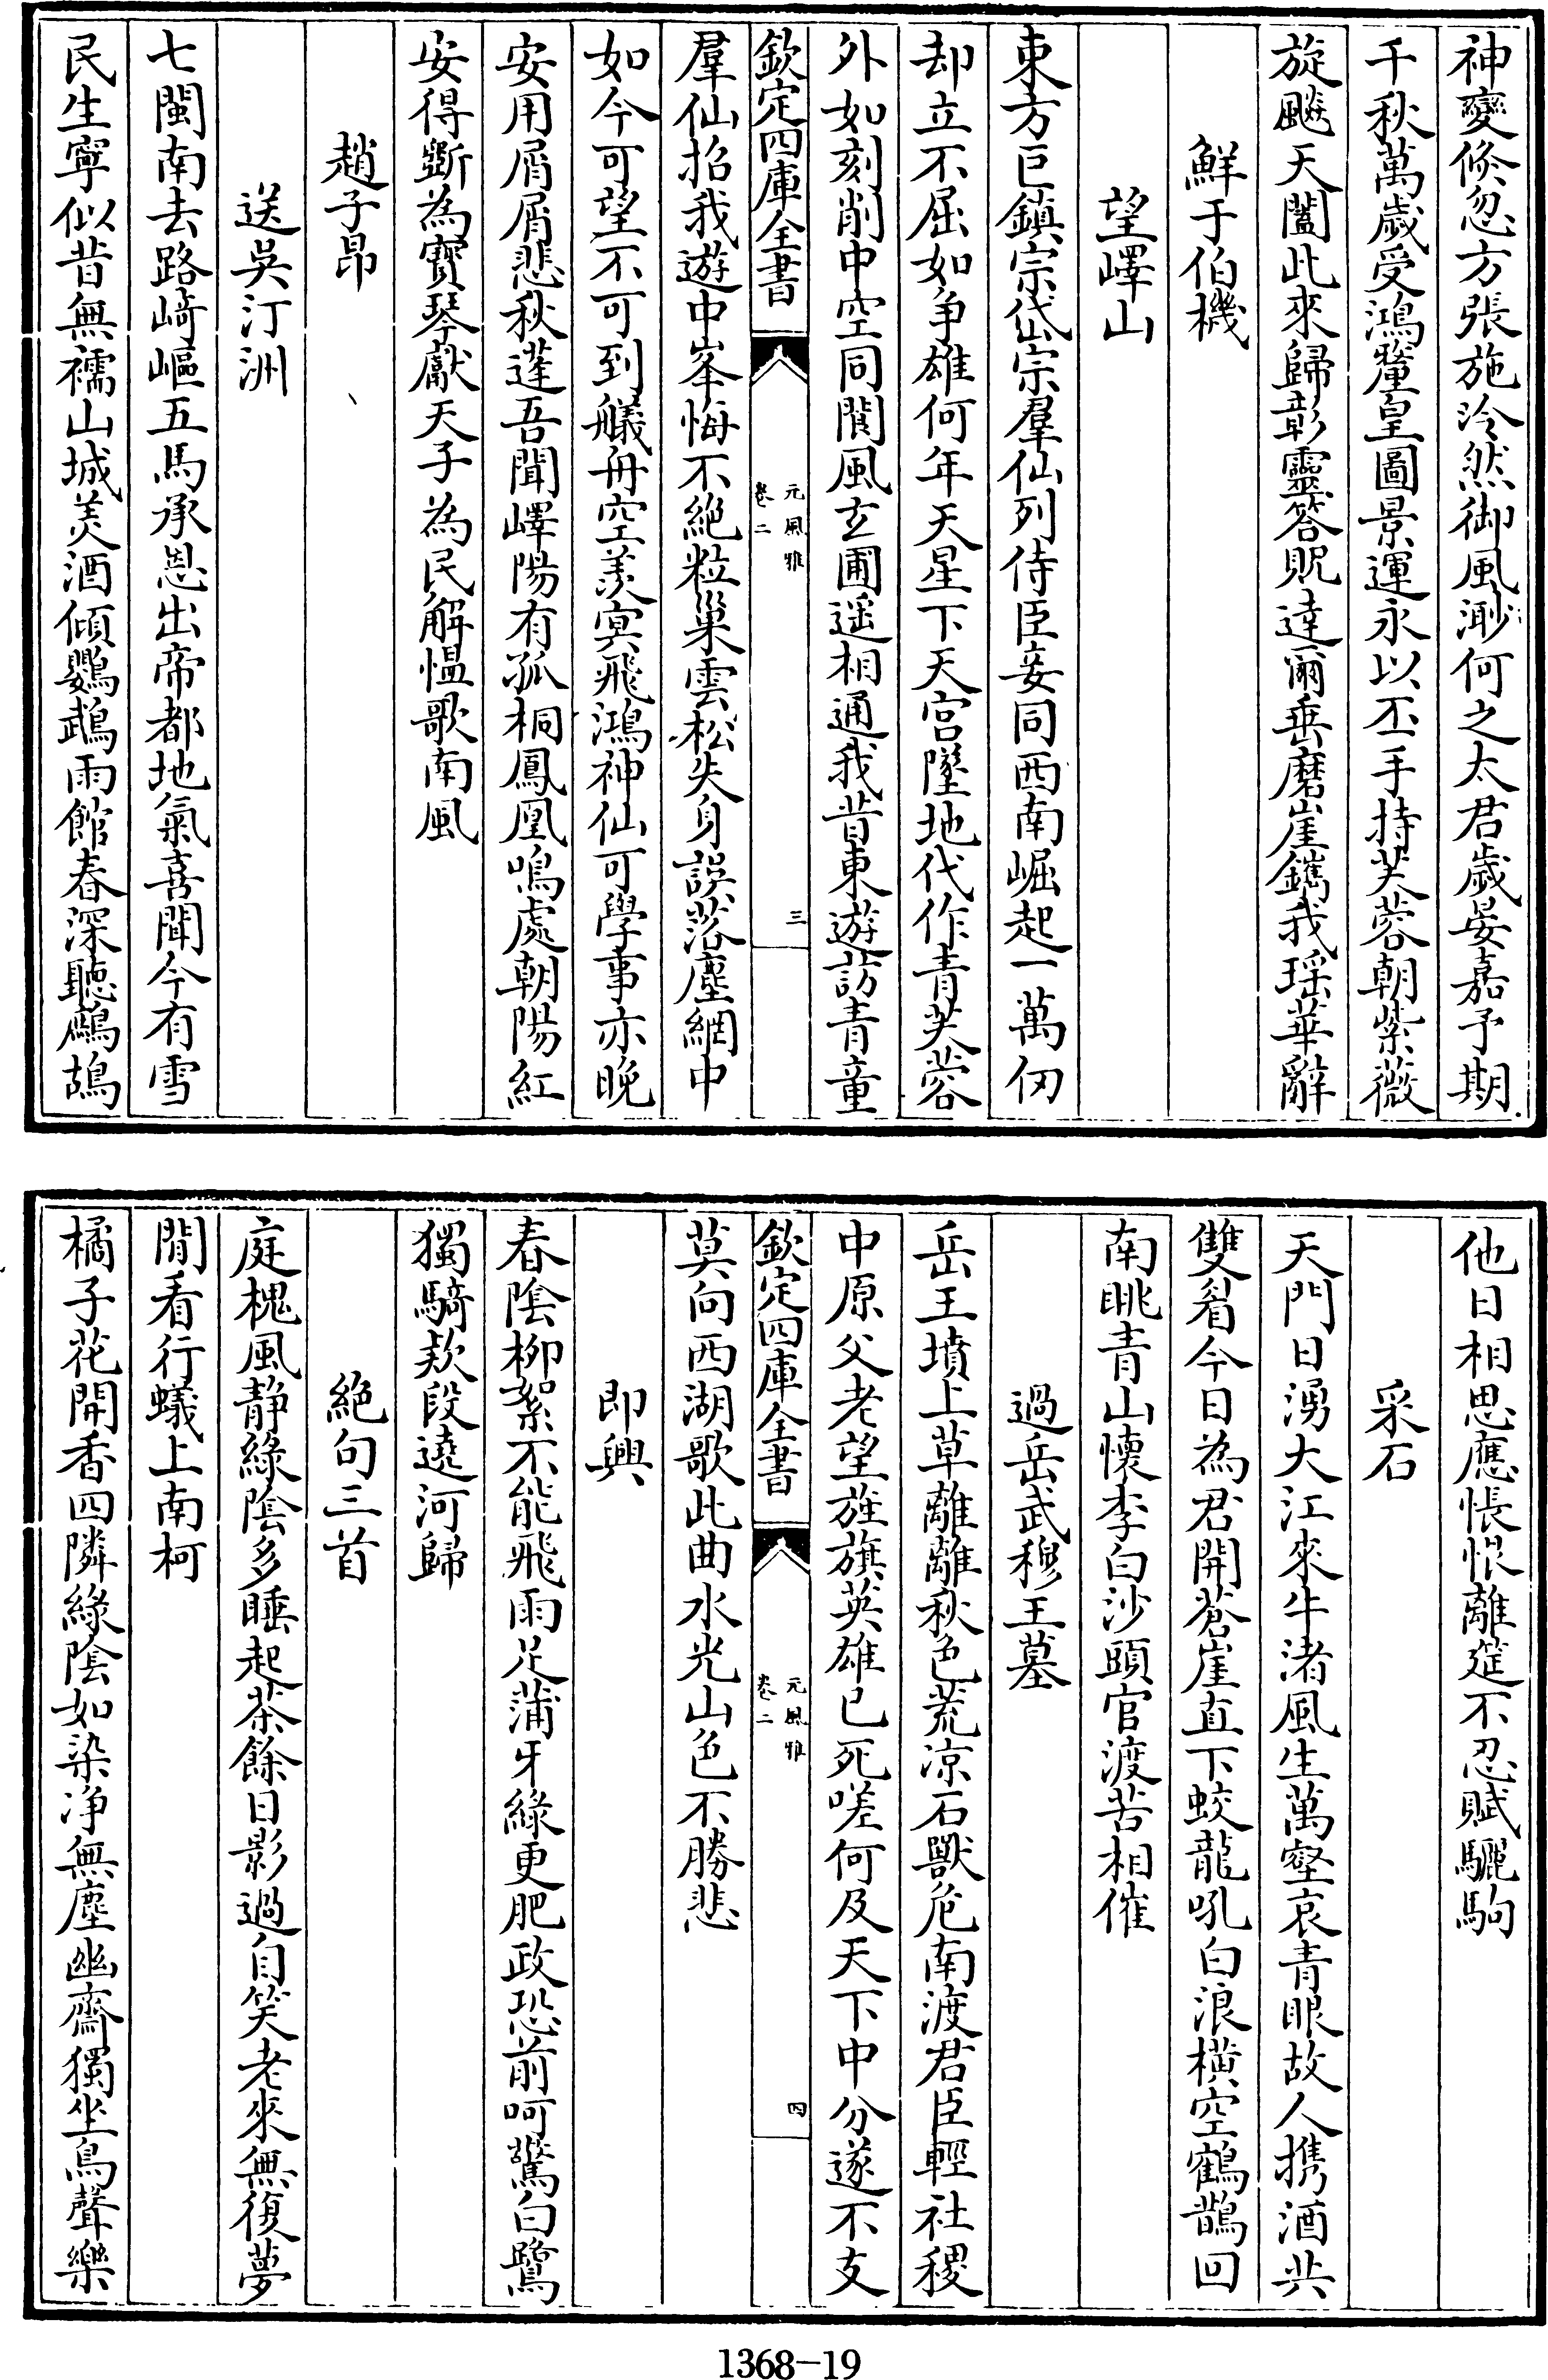 神變倐忽方張施泠然御風渺何之太君歲晏嘉予期
千秋萬歲受鴻釐皇圖景運永以丕手持芙蓉朝紫薇
旋飇天闔此來歸彰靈答貺達爾垂磨崖鐫我瑶華辭
鮮于伯機
望嶧山
東方巨鎮宗岱宗羣仙列侍臣妾同西南崛起一萬仞
却立不屈如争雄何年天星下天宫墜地代作青芙蓉
外如刻削中空同閬風玄圃遥相通我昔東遊訪青童
欽定四庫全書
元風雅
卷二
三
羣仙招我遊中峯悔不絶粒巢雲松失身誤落塵網中
如今可望不可到艤舟空羡冥飛鴻神仙可學事亦晩
安用屑屑悲秋蓬吾聞嶧陽有孤桐鳳凰鳴處朝陽紅
安得斲為寳琴獻天子為民解愠歌南風
趙子昂
送吳汀洲
七閩南去路﨑嶇五馬承恩出帝都地氣喜聞今有雪
民生寧似昔無襦山城羙酒傾鸚鵡雨館春深聽鷓鴣
他日相思應悵恨離筵不忍賦驪駒
采石
天門日湧大江來牛渚風生萬壑哀青眼故人携酒共
雙眉今日為君開蒼崖直下蛟龍吼白浪横空鶴鵲回
南眺青山懷李白沙頭官渡苦相催
過岳武穆王墓
岳王墳上草離離秋色荒凉石獸危南渡君臣輕社稷
中原父老望旌旗英雄已死嗟何及天下中分遂不支
欽定四庫全書
元風雅
卷二
四
莫向西湖歌此曲水光山色不勝悲
即興
春陰柳絮不能飛雨足蒲牙緑更肥政恐前呵驚白鷺
獨騎欵段遶河歸
絶句三首
庭槐風静緑陰多睡起茶餘日影過自笑老來無復夢
閒看行蟻上南柯
橘子花開香四隣緑陰如染净無塵幽齋獨坐鳥聲樂
1368-19